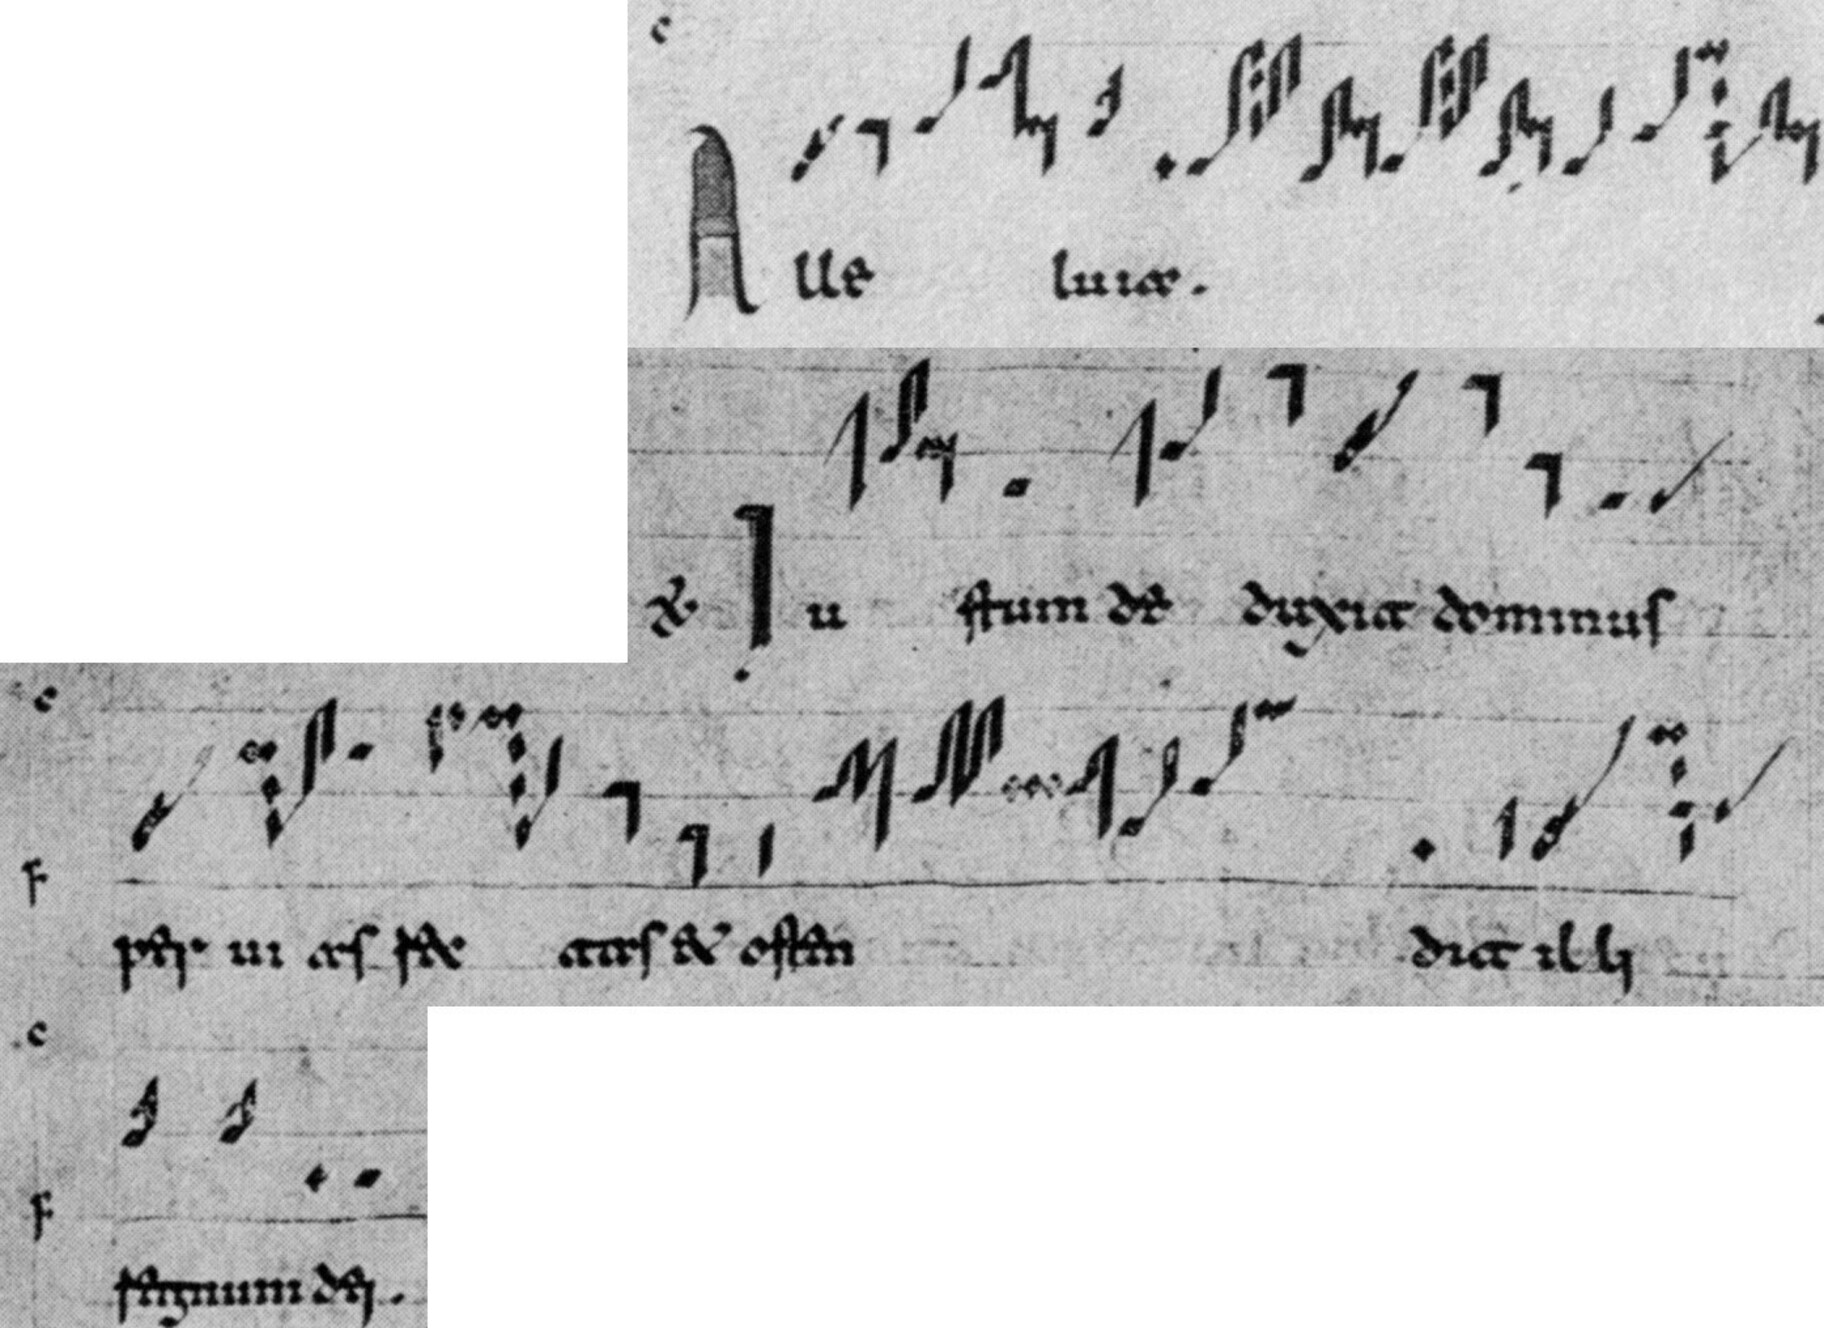 c
Alle luia.
℣ Iu stum de duxit dominus
c
f
per ui as rec tas & osten dit il li
c
f
regnum dei.